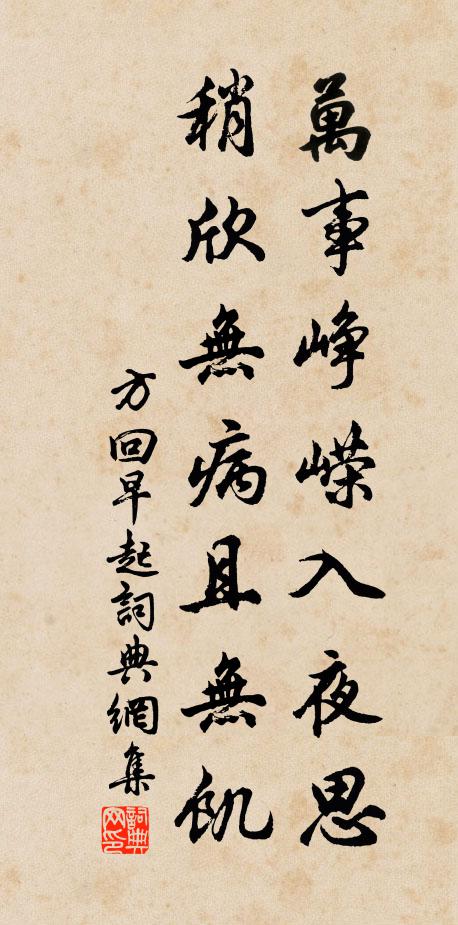 萬事崢嶸入夜思
稍欣無病且無飢
方回早起詞典網集
詞典网印